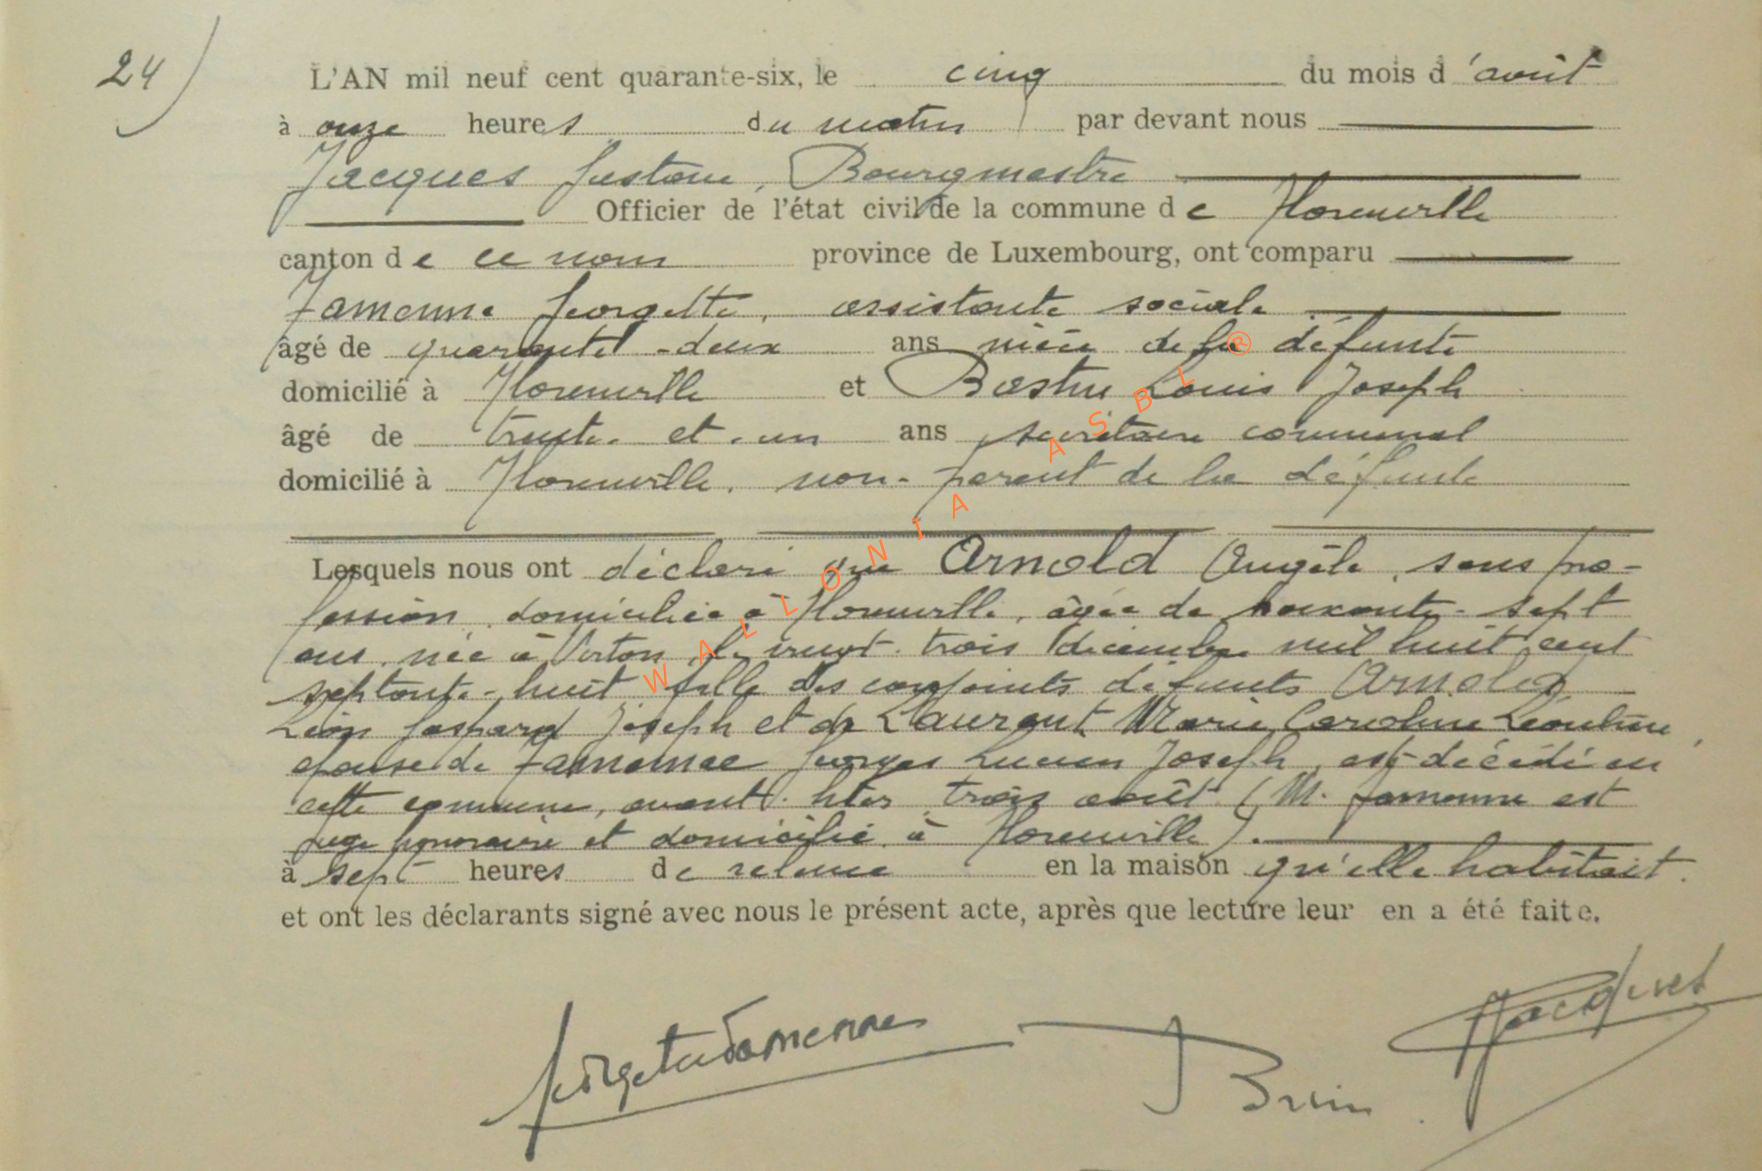 24)
L'AN mil neuf cent quarante-six, le cinq du mois d'août
à onze heures du matin par devant nous
Jacques Gustave, Bourgmestre
Officier de l'état civil de la commune de Florenville
canton de ce nom province de Luxembourg, ont comparu
Famenne Georgette, assistante sociale
âgé de quarante-deux ans nièce de la défunte
domicilié à Florenville et Louis Joseph
âgé de trente et un ans secrétaire communal
domicilié à Florenville, non-parent de la défunte
Lesquels nous ont déclaré que Arnold Angèle, sans pro-
fession, domiciliée à Florenville, âgée de soixante-sept
ans, née à Virton, le vingt-trois décembre mil huit cent
septante-huit fille des conjoints défunts Arnold
Léon Gaspard Joseph et de Laurent Marie Caroline Léontine,
épouse de Famenne Georges Lucien Joseph, est décédé en
cette commune, avant-hier trois août. (M. Famenne est
juge honoraire et domicilié à Florenville).
à sept heures de relevée en la maison qu'elle habitait.
et ont les déclarants signé avec nous le présent acte, après que lecture leur en a été faite.
Georgette Famenne
Jacques
WALLONIA ASBL ®